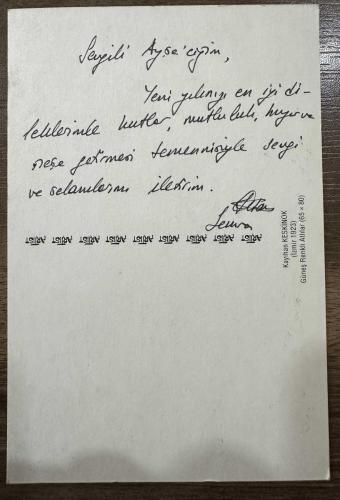 Sevgili Ayşe'ciğim,
Yeni yılınızı en iyi di-
leklerimle kutlar, mutluluk, huzur ve
neşe getirmesi temennisiyle sevgi
ve selamlarımı iletirim.
Semra
ARTIST ARTIST ARTIST ARTIST ARTIST ARTIST ARTIST ARTIST ARTIST
Kayıhan KESKİNOK
(İzmir 1923)
Güneş Renkli Atlılar (65 x 80)